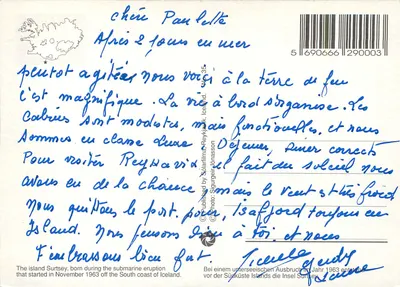 chère Paulette
Après 2 jours en mer
plutot agitées nous voici à la terre de feu
c'est magnifique. La vie à bord s'organise. Les
cabines sont modestes, mais fonctionelles, et nous
sommes en classe Luxe. Dejeuner, diner corrects
Pour visiter Reykjavik il fait du soleil nous
avons eu de la chance, mais le vent est très froid
Nous quittons le port. pour, Isafjord toujours en
Island. Nous pensons bien à toi. et nous
T'embrassons bien fort.
5 690666 290003
The island Surtsey, born during the submarine eruption
that started in November 1963 off the South coast of Iceland.
Bei einem unterseeischen Ausbruch im Jahr 1963 en
vor der Südküste Islands die Insel Surtsey.